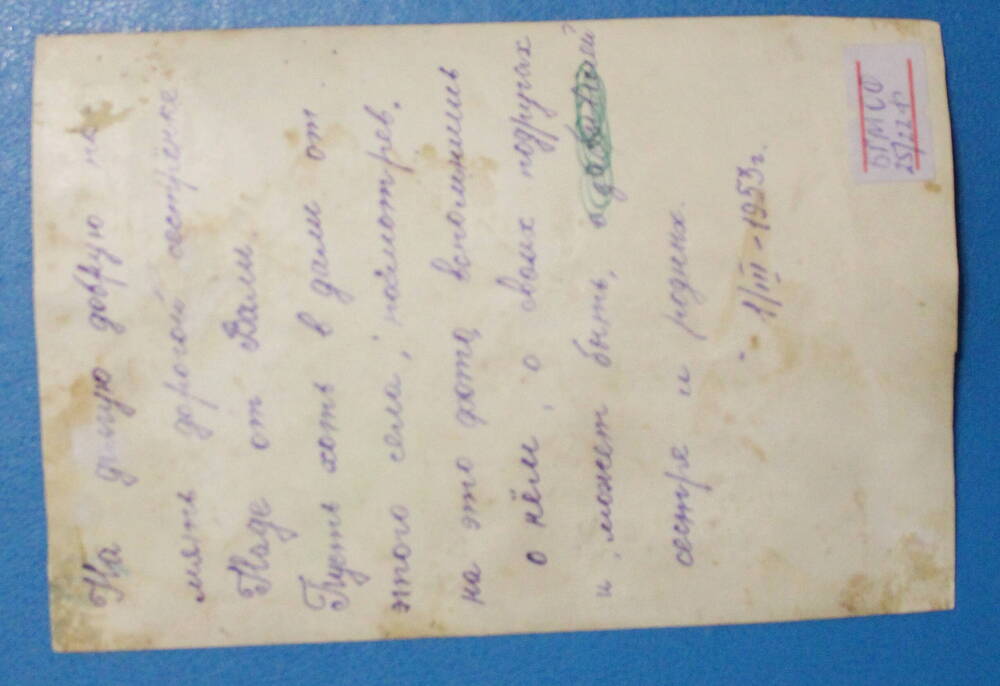 На долгую добрую па-
мять дорогой сестрёнке
Наде от Вали.
Пусть хоть в дали от
этого села, насмотрев,
на это фото, вспомнишь
о нём, о своих подругах
и, может быть, о
сестре и родных.
1/III - 1953г.
БГМСО